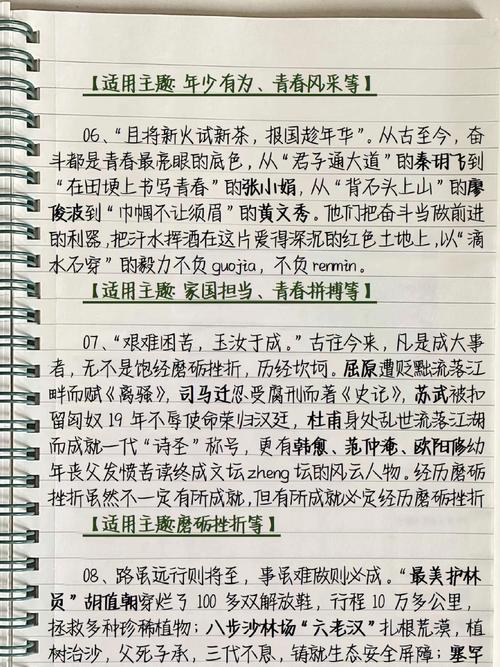 【适用主题:年少有为、青春风采等】
06、“且将新火试新茶，报国趁年华”。从古至今，奋
斗都是青春最亮眼的底色，从“君子通大道”的秦玥飞到
“在田埂上书写青春”的张小娟，从“背石头上山”的廖
俊波到“巾帼不让须眉”的黄文秀。他们把奋斗当做前进
的利器，把汗水挥洒在这片爱得深沉的红色土地上，以“滴
水石穿”的毅力不负guojia，不负renmin。
【适用主题:家国担当、青春拼搏等】
07、“艰难困苦，玉汝于成。”古往今来，凡是成大事
者，无不是饱经磨砺挫折，历经坎坷。屈原遭贬黜流落江
畔而赋《离骚》，司马迁忍受腐刑而著《史记》，苏武被扣
留匈奴19年不辱使命荣归汉廷，杜甫身处乱世流落江湖
而成就一代“诗圣”称号，更有韩愈、范仲淹、欧阳修幼
年丧父发愤苦读终成文坛zheng坛的风云人物。经历磨砺
挫折虽然不一定有所成就，但有所成就必定经历磨砺挫折
【适用主题:磨砺挫折等】
08、路虽远行则将至，事虽难做则必成。“最美护林
员”胡值朝穿烂了100多双解放鞋，行程10万多公里，
拯救多种珍稀植物；八步沙林场“六老汉”扎根荒漠，植
树治沙，父死子承，三代不息，铸就生态安全屏障；塞罕